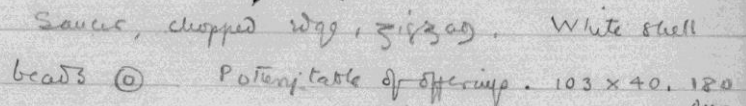 Saucer, chopped edge, zigzag. White shell
beads ⊙ Pottery table of offerings. 103 × 40. 180